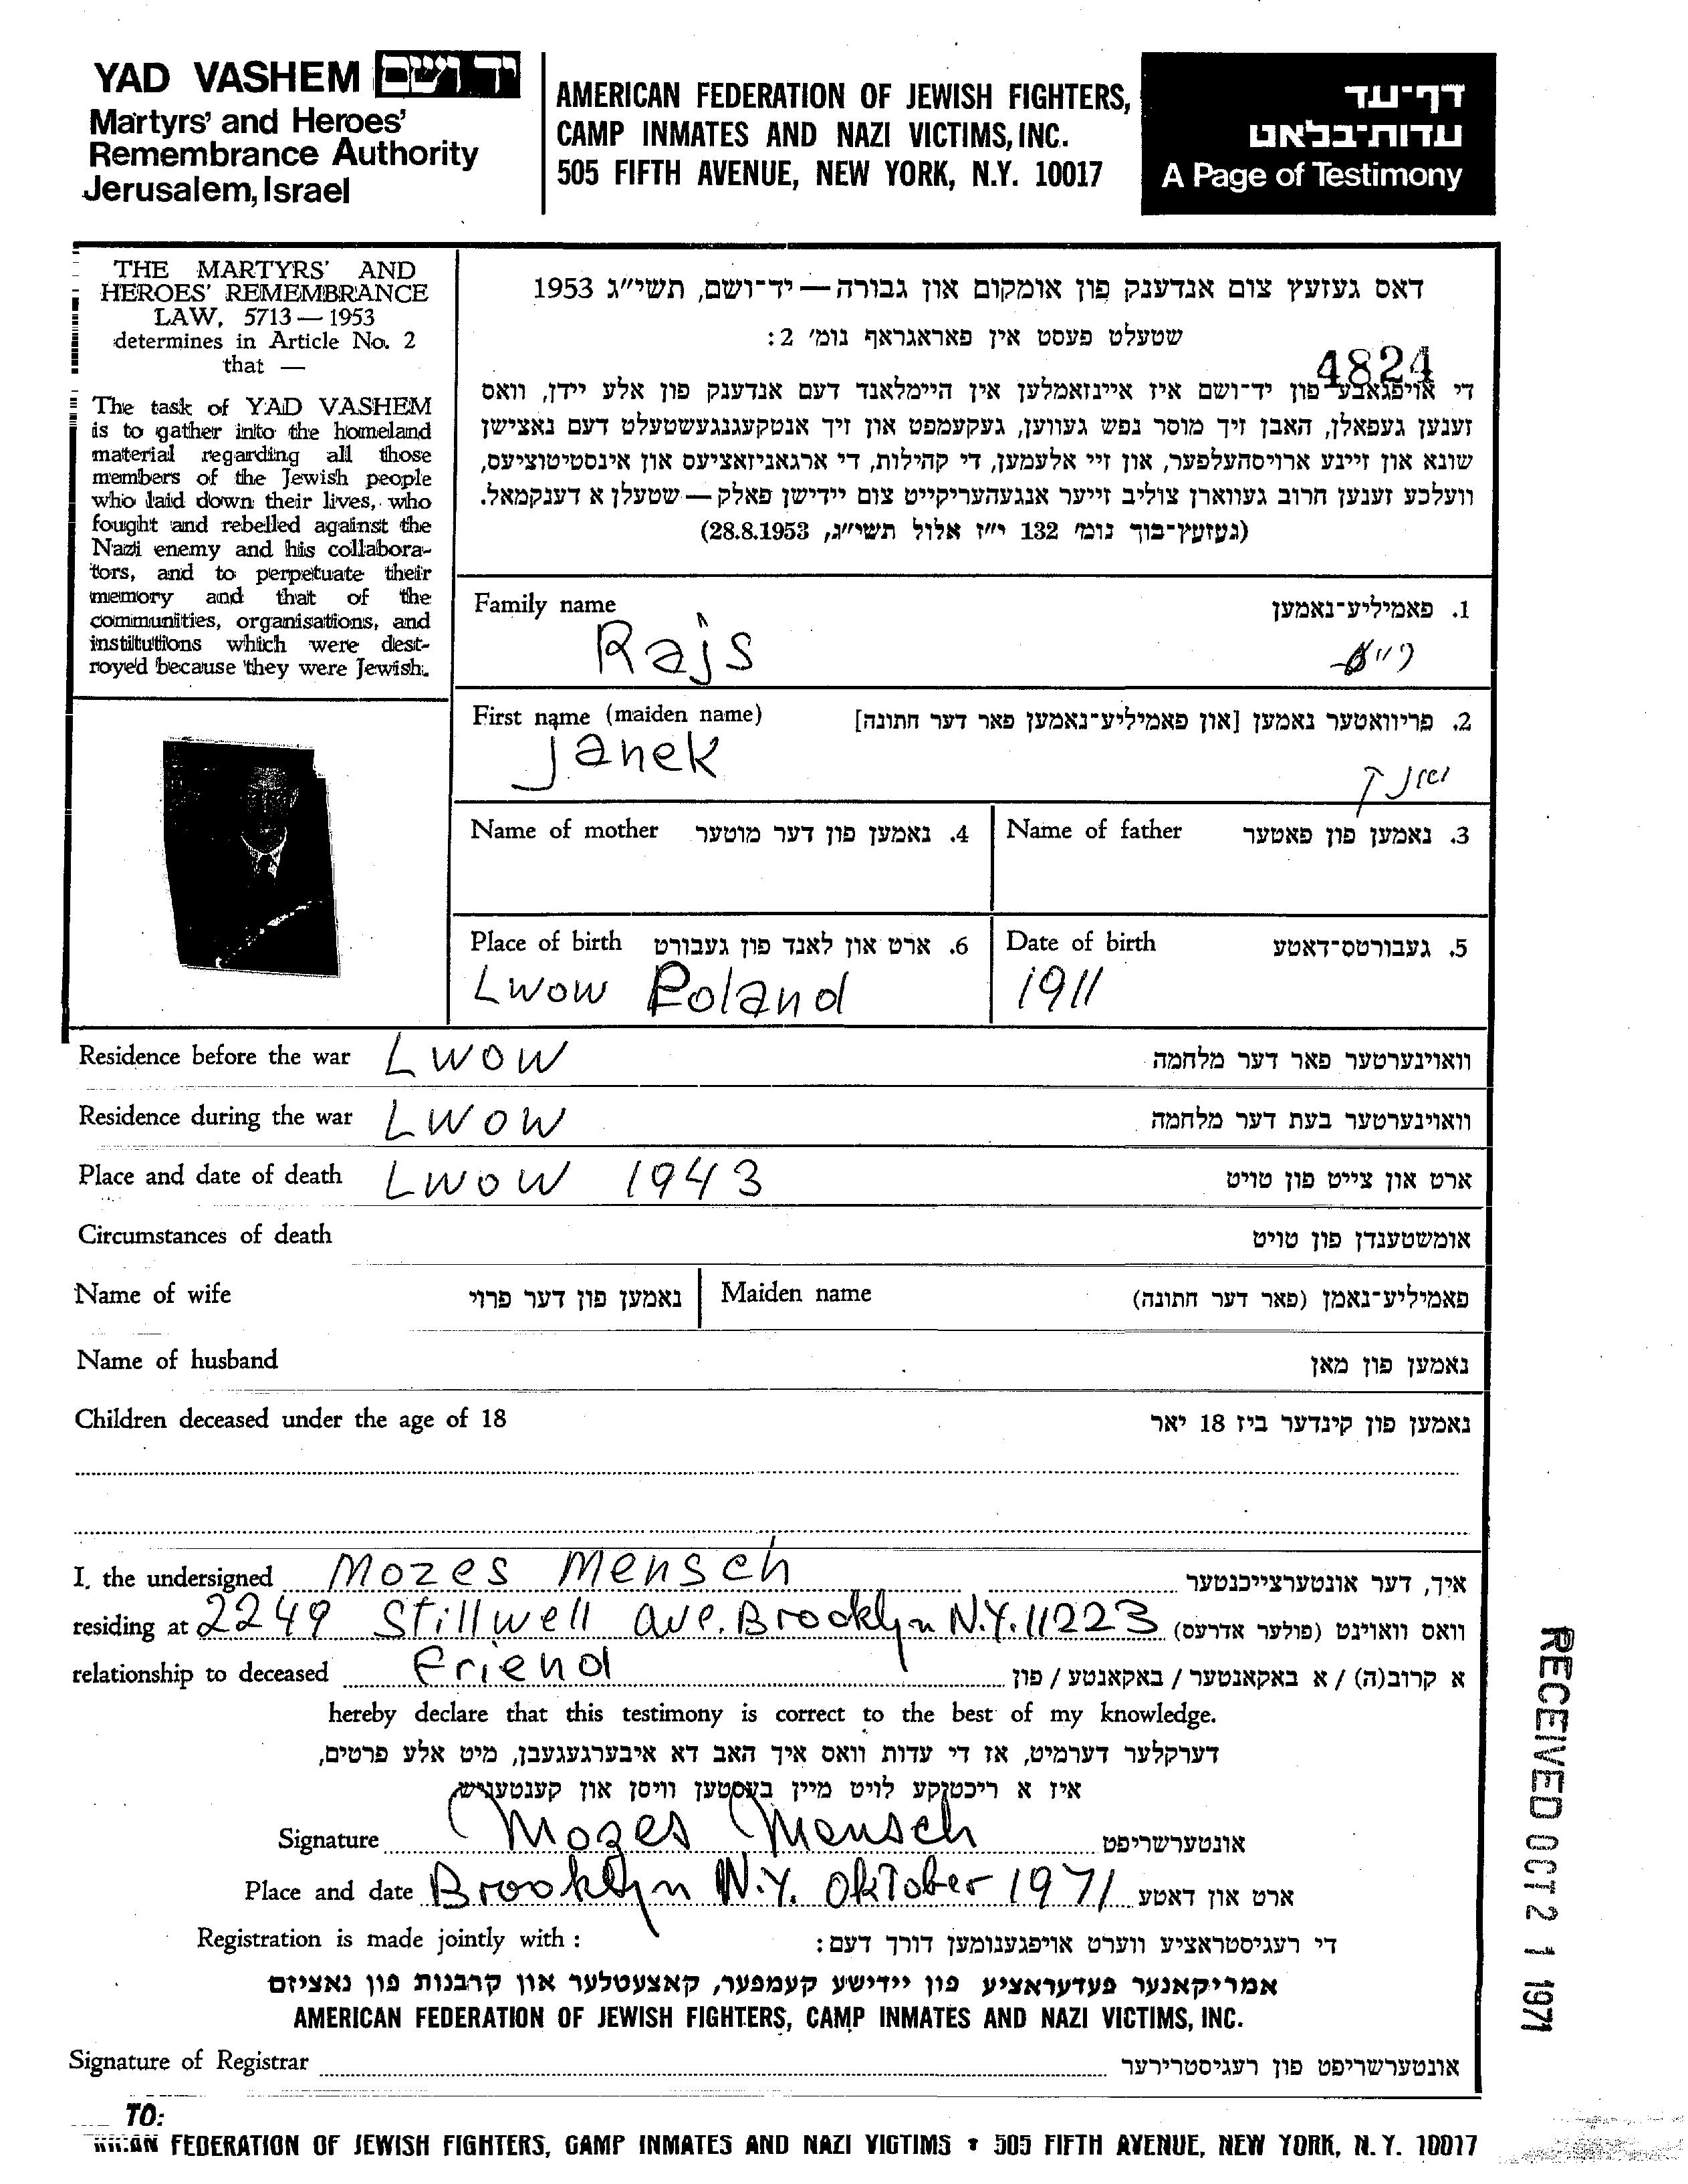 YAD VASHEM יד ושם
Martyrs' and Heroes'
Remembrance Authority
Jerusalem, Israel
AMERICAN FEDERATION OF JEWISH FIGHTERS,
CAMP INMATES AND NAZI VICTIMS, INC.
505 FIFTH AVENUE, NEW YORK, N.Y. 10017
דף־עד
עדות־בלאט
A Page of Testimony
THE MARTYRS' AND
HEROES' REMEMBRANCE
LAW, 5713—1953
determines in Article No. 2
that —
The task of YAD VASHEM
is to gather into the homeland
material regarding all those
members of the Jewish people
who laid down their lives, who
fought and rebelled against the
Nazi enemy and his collabora-
tors, and to perpetuate their
memory and that of the
communities, organisations, and
institutions which were dest-
royed because they were Jewish.
דאס געזעץ צום אנדענק פון אומקום און גבורה — יד־ושם, תשי״ג 1953
שטעלט פעסט אין פאראגראף נומ׳ 2:
4824
די אויפגאבע פון יד־ושם איז איינזאמלען אין היימלאנד דעם אנדענק פון אלע יידן, וואס
זענען געפאלן, האבן זיך מוסר נפש געווען, געקעמפט און זיך אנטקעגנגעשטעלט דעם נאצישן
שונא און זיינע ארויסהעלפער, און זיי אלעמען, די קהילות, די ארגאניזאציעס און אינסטיטוציעס,
וועלכע זענען חרוב געווארן צוליב זייער אנגעהעריקייט צום יידישן פאלק — שטעלן א דענקמאל.
(געזעץ־בוך נומ׳ 132 י״ז אלול תשי״ג, 28.8.1953)
Family name 1. פאמיליע־נאמען
Rajs
First name (maiden name) 2. פריוואטער נאמען [און פאמיליע־נאמען פאר דער חתונה]
Janek
Name of mother 4. נאמען פון דער מוטער Name of father 3. נאמען פון פאטער
Place of birth 6. ארט און לאנד פון געבורט Date of birth 5. געבורטס־דאטע
Lwow Poland 1911
Residence before the war Lwow וואוינערטער פאר דער מלחמה
Residence during the war Lwow וואוינערטער בעת דער מלחמה
Place and date of death Lwow 1943 ארט און צייט פון טויט
Circumstances of death אומשטענדן פון טויט
Name of wife נאמען פון דער פרוי Maiden name פאמיליע־נאמן (פאר דער חתונה)
Name of husband נאמען פון מאן
Children deceased under the age of 18 נאמען פון קינדער ביז 18 יאר
I, the undersigned Mozes Mensch איך, דער אונטערצייכנטער
residing at 2249 Stillwell ave. Brooklyn N.Y. 11223 וואס וואוינט (פולער אדרעס)
relationship to deceased Friend א קרוב(ה) / א באקאנטער / באקאנטע / פון
hereby declare that this testimony is correct to the best of my knowledge.
דערקלער דערמיט, אז די עדות וואס איך האב דא איבערגעגעבן, מיט אלע פרטים,
איז א ריכטיקע לויט מיין בעסטען וויסן און קענטעניש.
Signature Mozes Mensch אונטערשריפט
Place and date Brooklyn N.Y. Oktober 1971 ארט און דאטע
Registration is made jointly with : די רעגיסטראציע ווערט אויפגענומען דורך דעם:
אמריקאנער פעדעראציע פון יידישע קעמפער, קאצעטלער און קרבנות פון נאציזם
AMERICAN FEDERATION OF JEWISH FIGHTERS, CAMP INMATES AND NAZI VICTIMS, INC.
Signature of Registrar אונטערשריפט פון רעגיסטרירער
TO:
FEDERATION OF JEWISH FIGHTERS, CAMP INMATES AND NAZI VICTIMS * 505 FIFTH AVENUE, NEW YORK, N.Y. 10017
RECEIVED OCT 21 1971